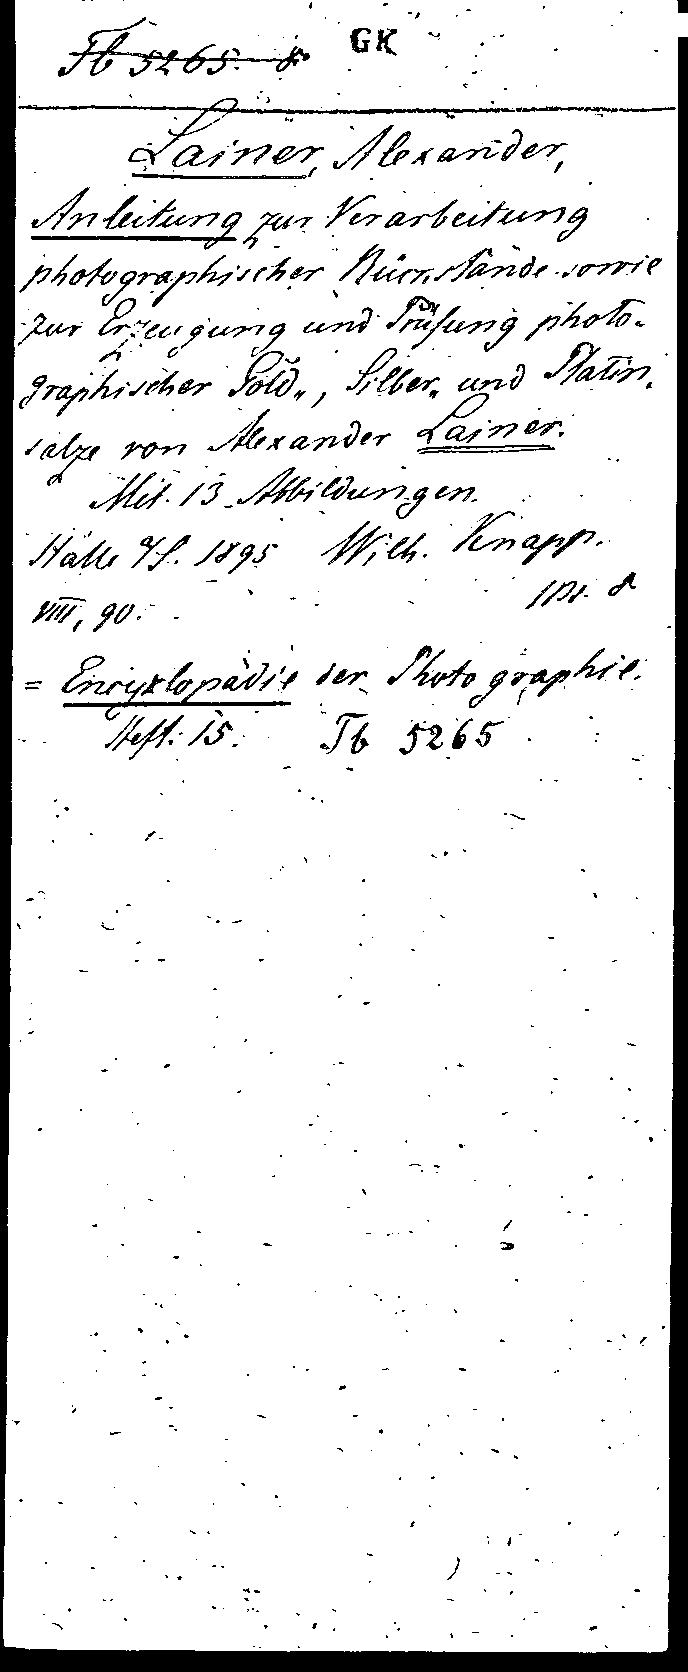 Tb 5265. 8° GK
Lainer, Alexander,
Anleitung zur Verarbeitung
photographischer Rückstände sowie
zur Erzeugung und Prüfung photo-
graphischer Gold-, Silber- und Platin-
salze von Alexander Lainer.
Mit 13 Abbildungen.
Halle a/S. 1895 Wilh. Knapp.
VIII, 90. 8
= Encyklopädie der Photographie.
Heft. 15. Tb 5265